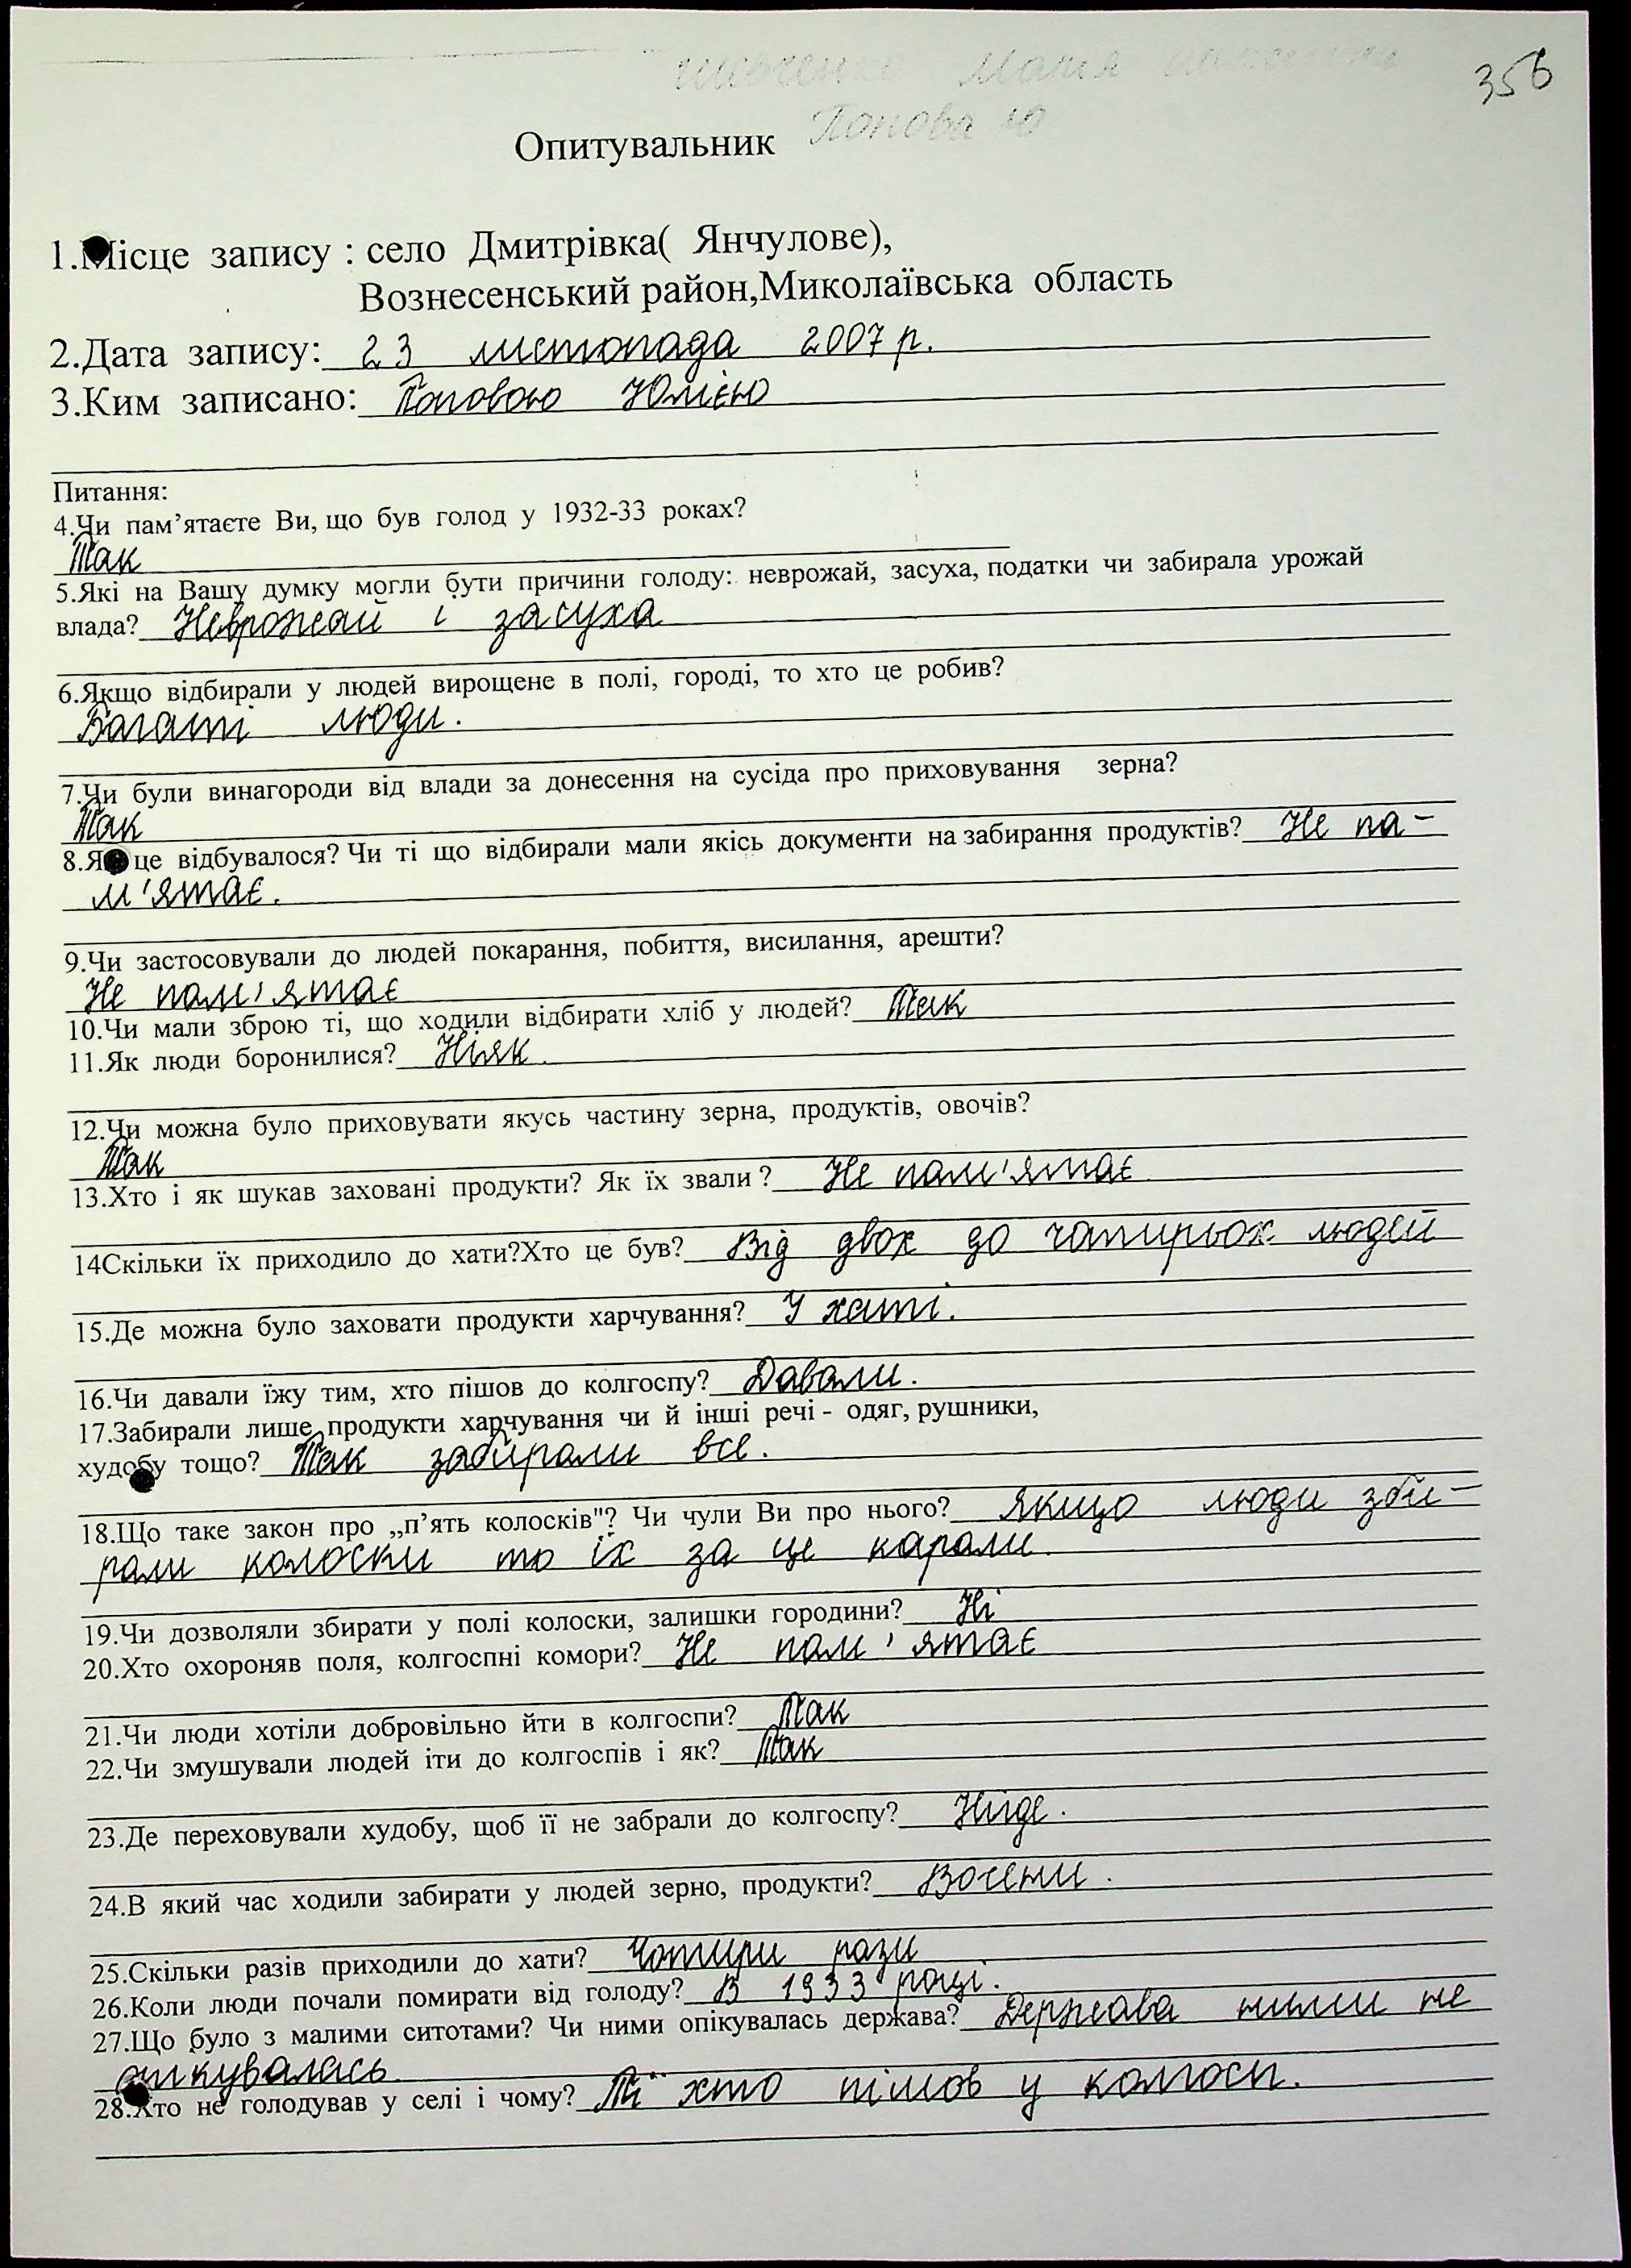 356
Марія
Попова Ю
Опитувальник
1.Місце запису : село Дмитрівка( Янчулове),
Вознесенський район,Миколаївська область
2.Дата запису: 23 листопада 2007 р.
3.Ким записано: Поповою Юлією
Питання:
4.Чи пам’ятаєте Ви, що був голод у 1932-33 роках?
Так
5.Які на Вашу думку могли бути причини голоду: неврожай, засуха, податки чи забирала урожай
влада? Неврожай і засуха
6.Якщо відбирали у людей вирощене в полі, городі, то хто це робив?
Багаті люди.
7.Чи були винагороди від влади за донесення на сусіда про приховування зерна?
Так
8.Як це відбувалося? Чи ті що відбирали мали якісь документи на забирання продуктів? Не па-
м'ятає.
9.Чи застосовували до людей покарання, побиття, висилання, арешти?
Не пам'ятає
10.Чи мали зброю ті, що ходили відбирати хліб у людей? Так
11.Як люди боронилися? Ніяк.
12.Чи можна було приховувати якусь частину зерна, продуктів, овочів?
Так
13.Хто і як шукав заховані продукти? Як їх звали ? Не пам'ятає
14Скільки їх приходило до хати?Хто це був? Від двох до чотирьох людей
15.Де можна було заховати продукти харчування? У хаті.
16.Чи давали їжу тим, хто пішов до колгоспу? Давали.
17.Забирали лише продукти харчування чи й інші речі - одяг, рушники,
худобу тощо? Так забирали все.
18.Що таке закон про „п’ять колосків"? Чи чули Ви про нього? Якщо люди зби-
рали колоски то їх за це карали.
19.Чи дозволяли збирати у полі колоски, залишки городини? Ні
20.Хто охороняв поля, колгоспні комори? Не пам'ятає
21.Чи люди хотіли добровільно йти в колгоспи? Так
22.Чи змушували людей іти до колгоспів і як? Так
23.Де переховували худобу, щоб її не забрали до колгоспу? Ніде.
24.В який час ходили забирати у людей зерно, продукти? Восени.
25.Скільки разів приходили до хати? Чотири рази
26.Коли люди почали помирати від голоду? В 1933 році.
27.Що було з малими ситотами? Чи ними опікувалась держава? Держава ними не
опікувалась.
28.Хто не голодував у селі і чому? Ті хто пішов у колгосп.